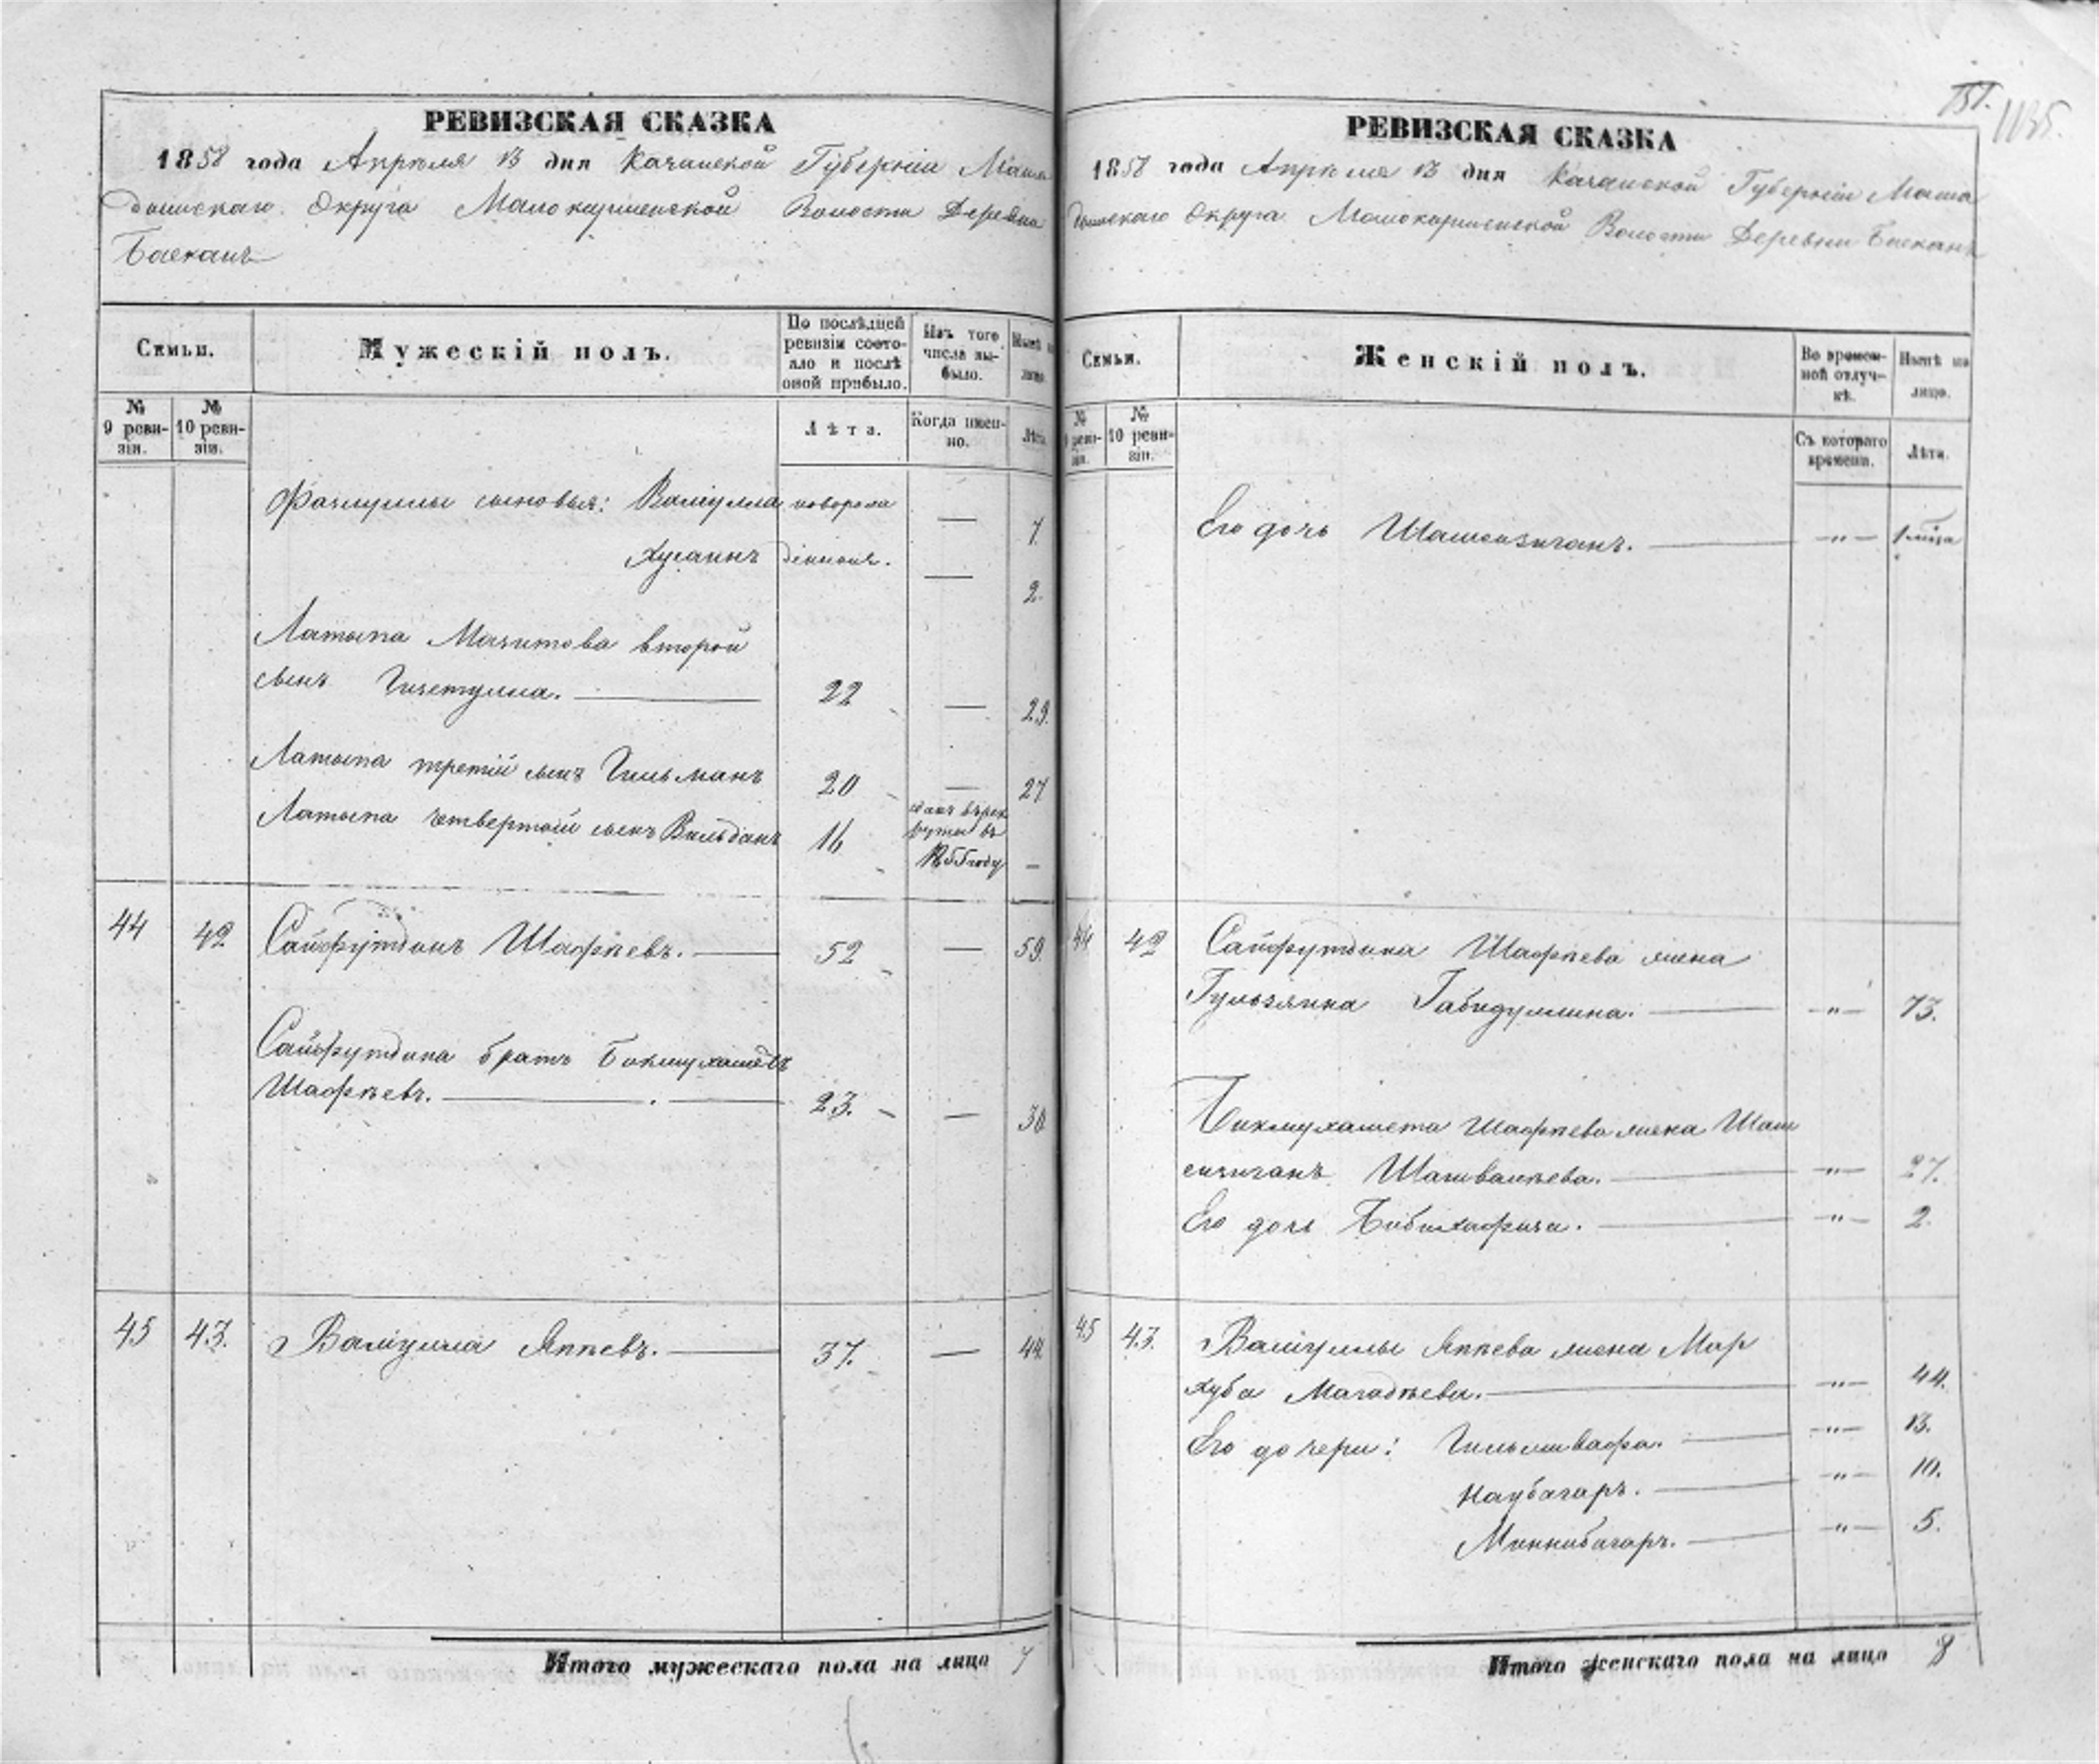 РЕВИЗСКАЯ СКАЗКА
1858 года Апрѣля 13 дня Казанской Губерніи Мама
дышскаго Округа Малокирменской Волости Деревни
Баекань
Семьи.
Мужескій полъ.
По послѣдней ревизіи состояло и послѣ оной прибыло.
Изъ того числа выбыло.
Нынѣ на лицо.
№ 9 ревизіи.
№ 10 ревизіи.
Лѣта.
Когда именно.
Лѣта.
Фазлуллы сыновья: Валіулла новорож — 7.
Хусаинъ денные. — 2.
Латыпа Мазитова второй
сынъ Гизетулла. — 22 — 29.
Латыпа третій сынъ Гильманъ 20 — 27
Латыпа четвертый сынъ Вильданъ 16 сданъ въ рек
руты въ
1855 году —
44 42 Сайфутдинъ Шафѣевъ. — 52 — 59.
Сайфутдина братъ Бикмухаметъ
Шафѣевъ. — 23. — 30
45 43. Валіулла Яппѣевъ. — 37. — 44.
Итого мужескаго пола на лицо 7
1135.
РЕВИЗСКАЯ СКАЗКА
1858 года Апрѣля 13 дня Казанской Губерніи Мама
дышскаго Округа Малокирменской Волости Деревни Баекань
Семьи.
Женскій полъ.
Во временной отлучкѣ.
Нынѣ на лицо.
№ 9 ревизіи.
№ 10 ревизіи.
Съ котораго времени.
Лѣта.
Его дочь Шамсизиганъ. — „ —
44 42 Сайфутдина Шафѣева жена
Гульзянка Габидуллина. — „ — 73.
Бикмухамета Шафѣева жена Шам
сизиганъ Шагивалѣева. — „ — 27.
Его дочь Бибихафиза. — „ — 2.
45 43. Валіуллы Яппѣева жена Мар
хуба Магадѣева. — „ — 44.
Его дочери: Гильмивафа. — „ — 13.
Наубагаръ. — „ — 10.
Миннибагаръ. — „ — 5.
Итого женскаго пола на лицо 8